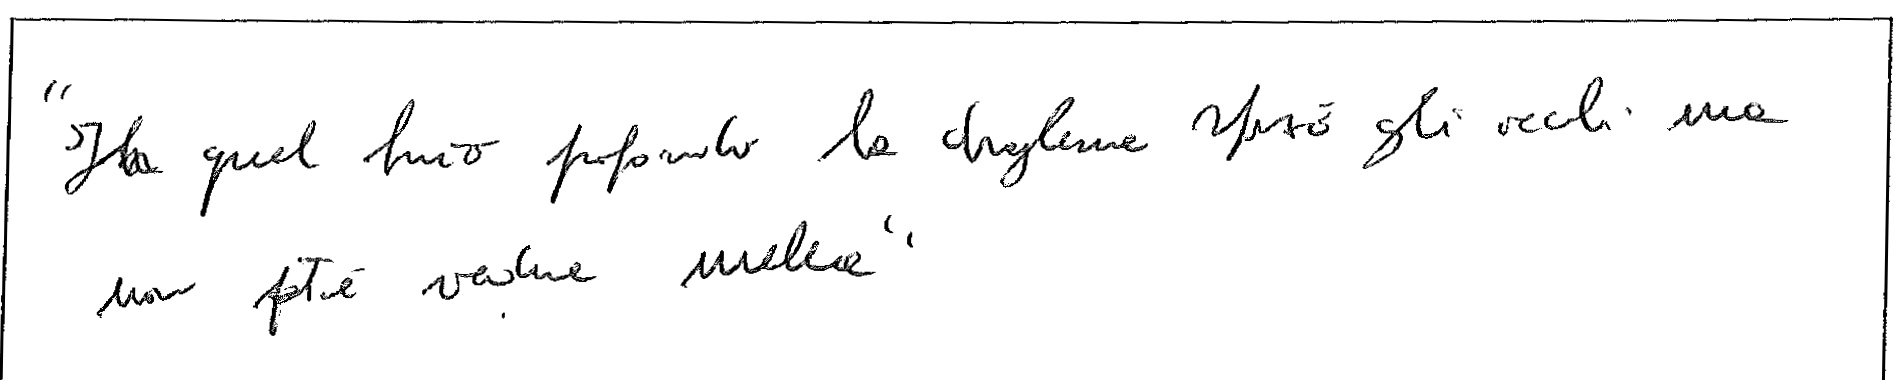 "In quel buio profondo la dragherne sforzò gli occhi ma
non poté vedere nulla"